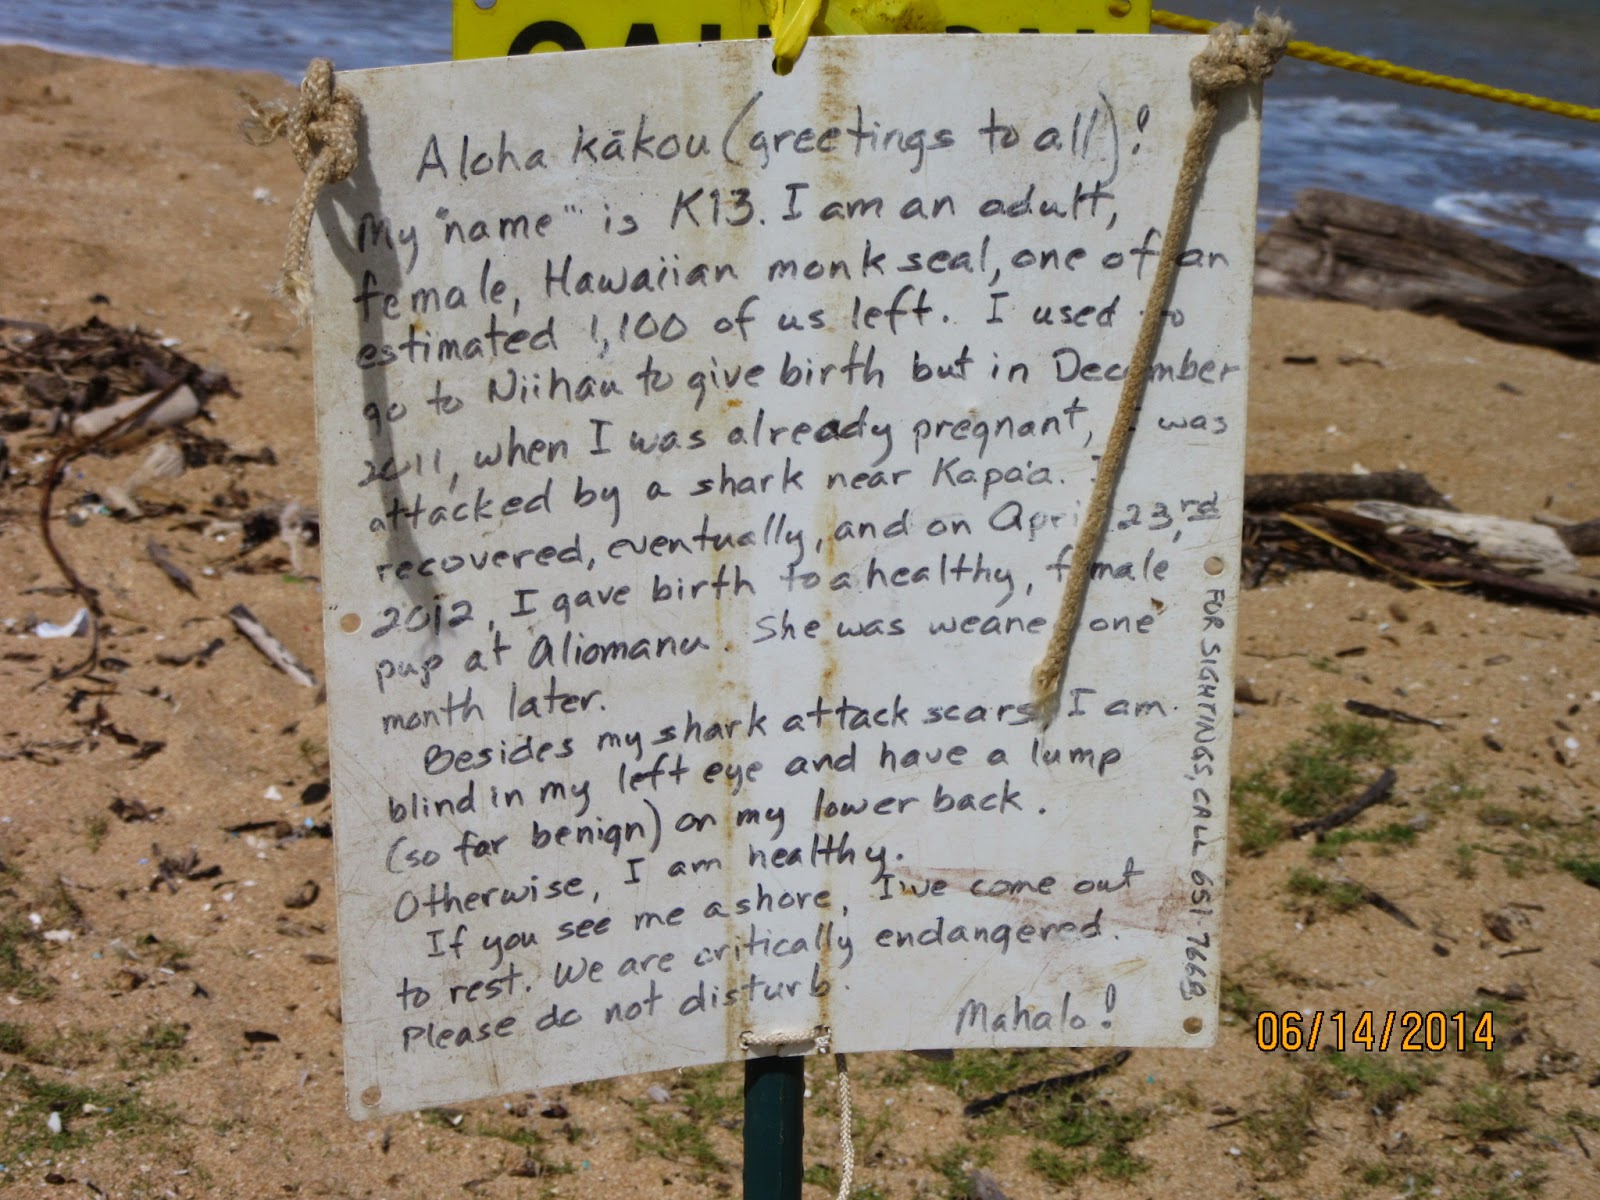 CAUTION
Aloha kākou (greetings to all)!
My "name" is K13. I am an adult,
female, Hawaiian monk seal, one of an
estimated 1,100 of us left. I used to
go to Niihau to give birth but in December
2011, when I was already pregnant, I was
attacked by a shark near Kapa'a. I
recovered, eventually, and on April 23,rd
2012, I gave birth to a healthy, female
pup at Aliomanu. She was weaned one
month later.
Besides my shark attack scars, I am
blind in my left eye and have a lump
(so far benign) on my lower back.
Otherwise, I am healthy.
If you see me ashore, I've come out
to rest. We are critically endangered.
Please do not disturb.
Mahalo!
FOR SIGHTINGS, CALL 651-7668
06/14/2014